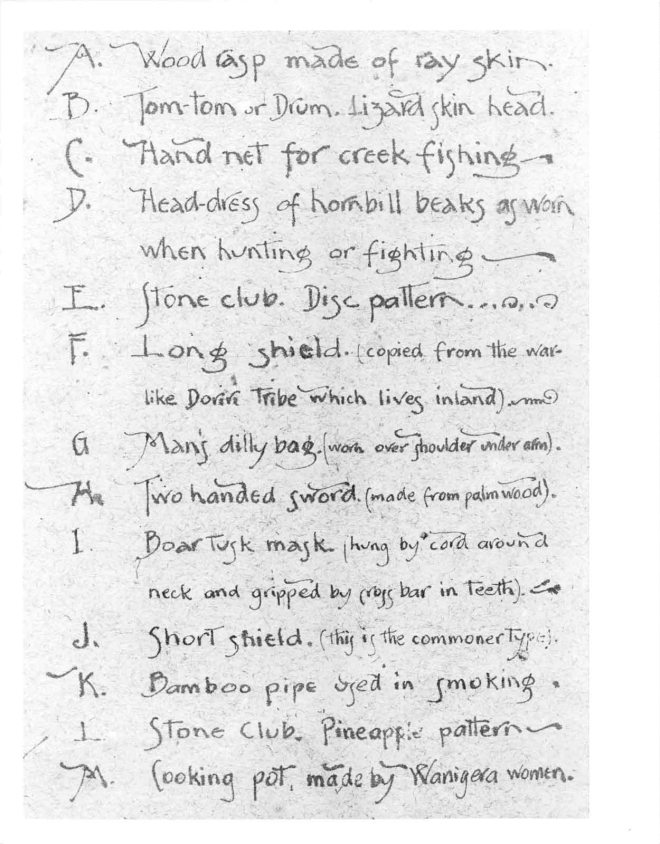 A. Wood rasp made of ray skin.
B. Tom-tom or Drum. Lizard skin head.
C. Hand net for creek fishing
D. Head-dress of hornbill beaks as worn
when hunting or fighting
E. Stone club. Disc pattern...
F. Long shield. (copied from the war-
like Doriri Tribe which lives inland).
G Man's dilly bag. (worn over shoulder under arm).
H. Two handed sword. (made from palm wood).
I. Boar Tusk mask. (hung by cord around
neck and gripped by cross bar in Teeth).
J. Short shield. (this is the commoner Type).
K. Bamboo pipe used in smoking.
L Stone Club. Pineapple pattern
M. Cooking pot, made by Wanigera women.